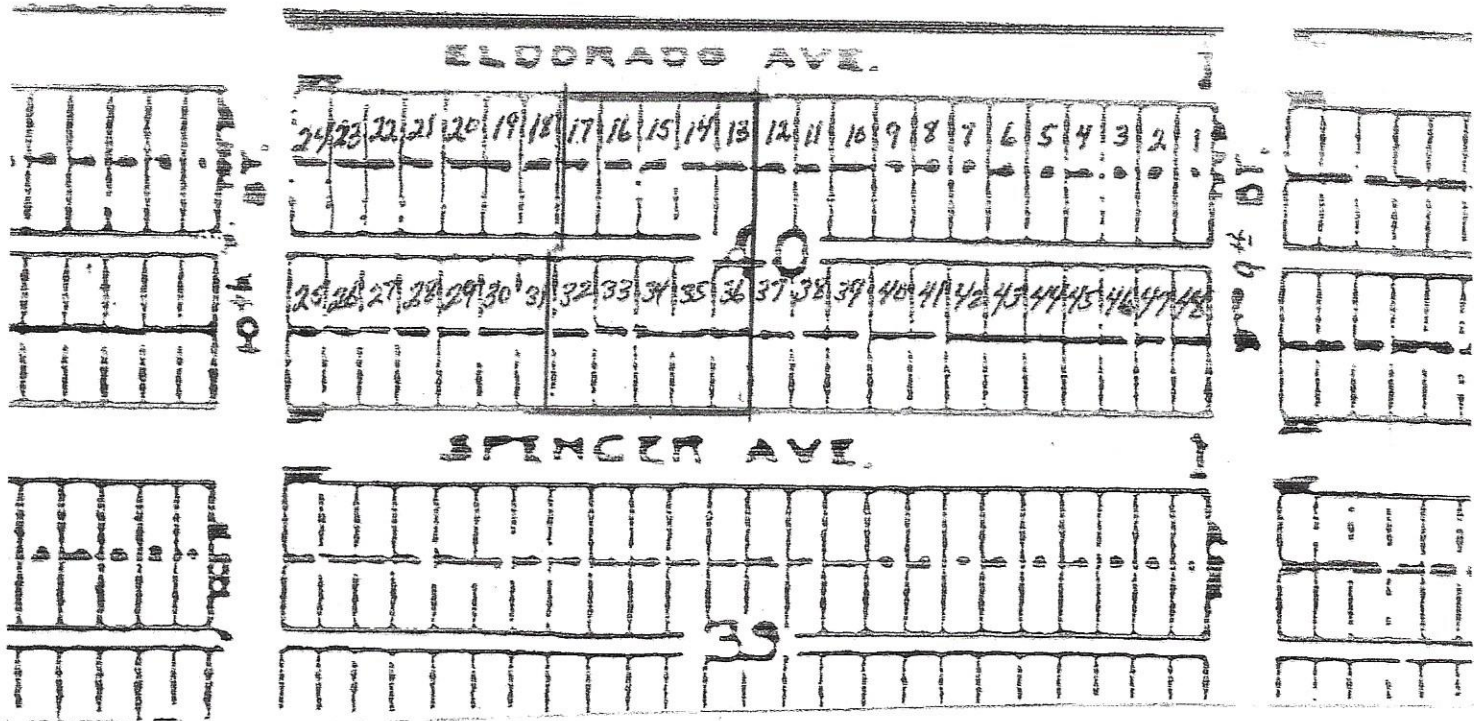 ELDORADO AVE.
24 23 22 21 20 19 18 17 16 15 14 13 12 11 10 9 8 7 6 5 4 3 2 1
25 26 27 28 29 30 31 32 33 34 35 36 37 38 39 40 41 42 43 44 45 46 47 48
10th
9th ST.
SPENCER AVE.